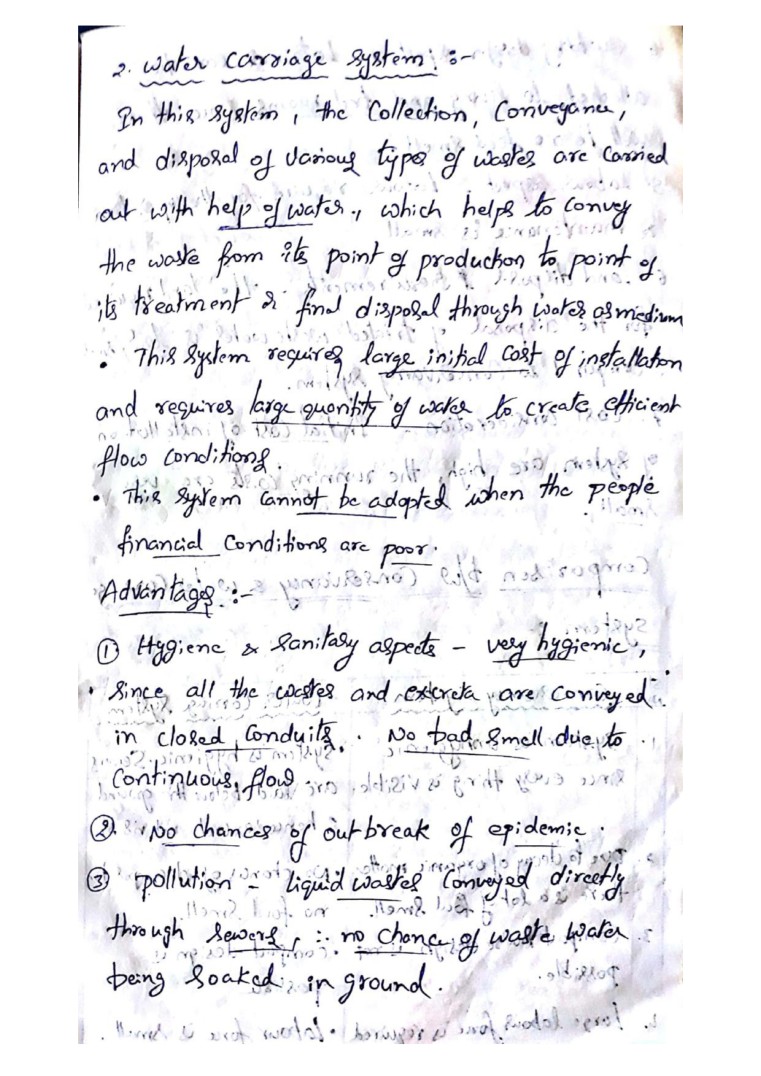 2. water carriage system :-
In this system, the Collection, Conveyance,
and disposal of various types of wastes are carried
out with help of water., which helps to convey
the waste from its point of production to point of
its treatment & final disposal through water as medium
• This system requires large initial cost of installation
and requires large quantity of water to create efficient
flow conditions.
• This system cannot be adopted when the people
financial conditions are poor.
Advantages :-
① Hygiene & sanitary aspects - very hygienic,
• Since all the wastes and excreta are conveyed
in closed conduits. No bad smell due to
continuous flow.
② No chances of outbreak of epidemic.
③ pollution - liquid wastes conveyed directly
through sewers, ∴ no chance of waste water
being soaked in ground.